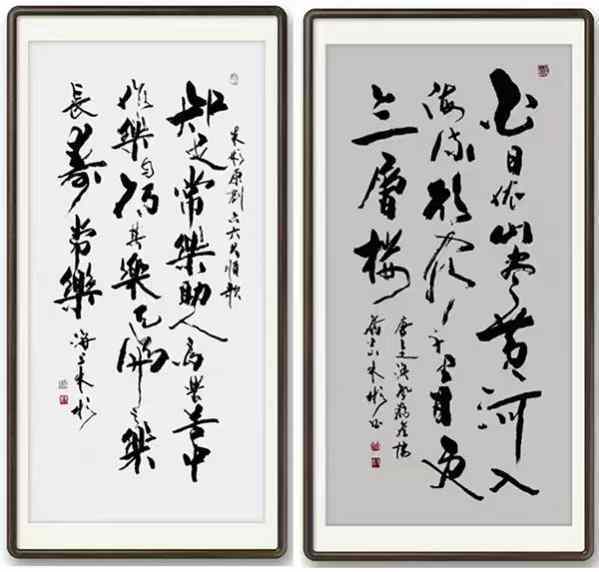 朱彬原創六六大順歌
知足常樂助人為樂苦中
作樂自得其樂天倫之樂
長壽常樂
海上朱彬
白日依山盡黃河入
海流欲窮千里目更
上一層樓
唐王之渙登鸛雀樓
朱彬書